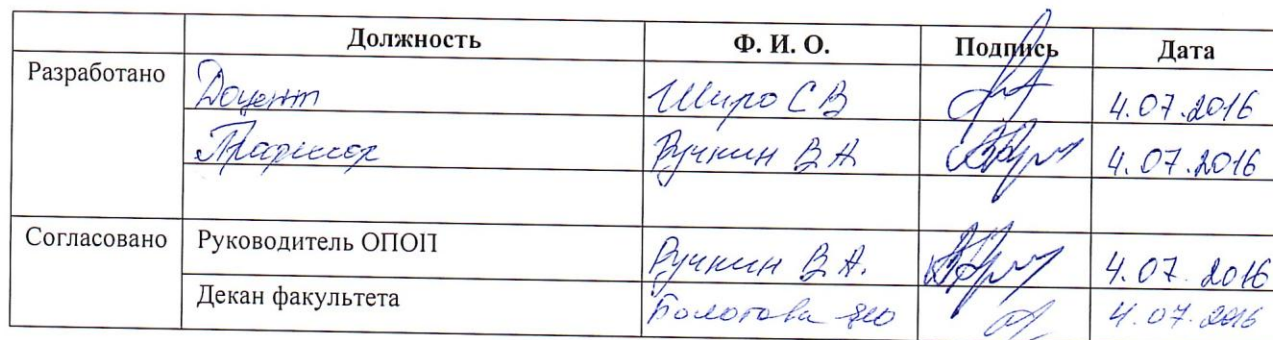 Должность Ф. И. О. Подпись Дата
Разработано Доцент Широ С В 4.07.2016
Профессор Ручкин В А 4.07.2016
Согласовано Руководитель ОПОП Ручкин В А. 4.07.2016
Декан факультета Болотова 4.07.2016